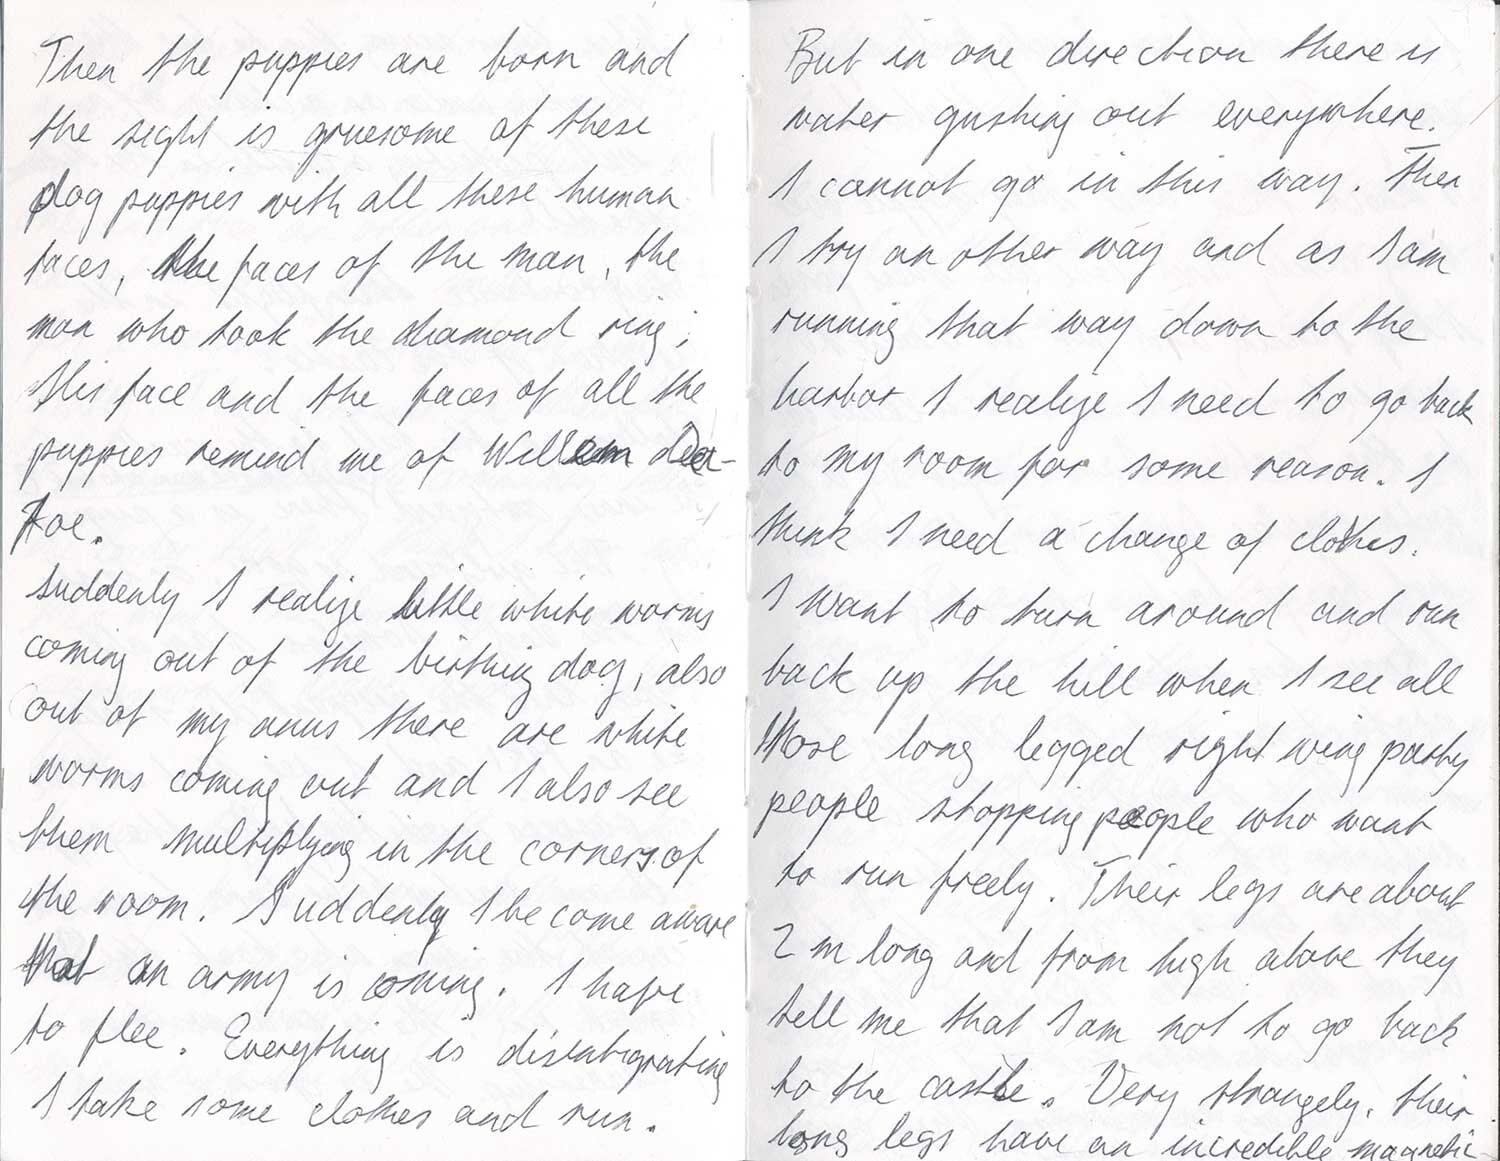 Then the puppies are born and
the sight is gruesome of these
dog puppies with all these human
faces, the faces of the man, the
man who took the diamond ring;
His face and the faces of all the
puppies remind me of Willem Da-
foe.
Suddenly I realize little white worms
coming out of the birthing dog, also
out of my anus there are white
worms coming out and I also see
them multiplying in the corners of
the room. Suddenly I become aware
that an army is coming. I have
to flee. Everything is disintigrating
I take some clothes and run.
But in one direction there is
water gushing out everywhere.
I cannot go in this way. Then
I try another way and as I am
running that way down to the
harbor I realize I need to go back
to my room for some reason. I
think I need a change of clothes.
I want to turn around and run
back up the hill when I see all
those long legged right wing party
people stopping people who want
to run freely. Their legs are about
2 m long and from high above they
tell me that I am not to go back
to the castle. Very strangely, their
long legs have an incredible magnetic